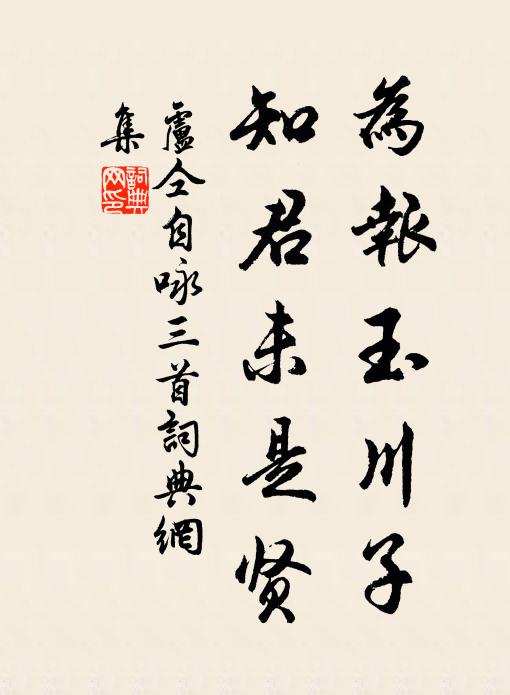 為報玉川子
知君未是贤
盧仝自咏三首詞典網
集
詞典网印